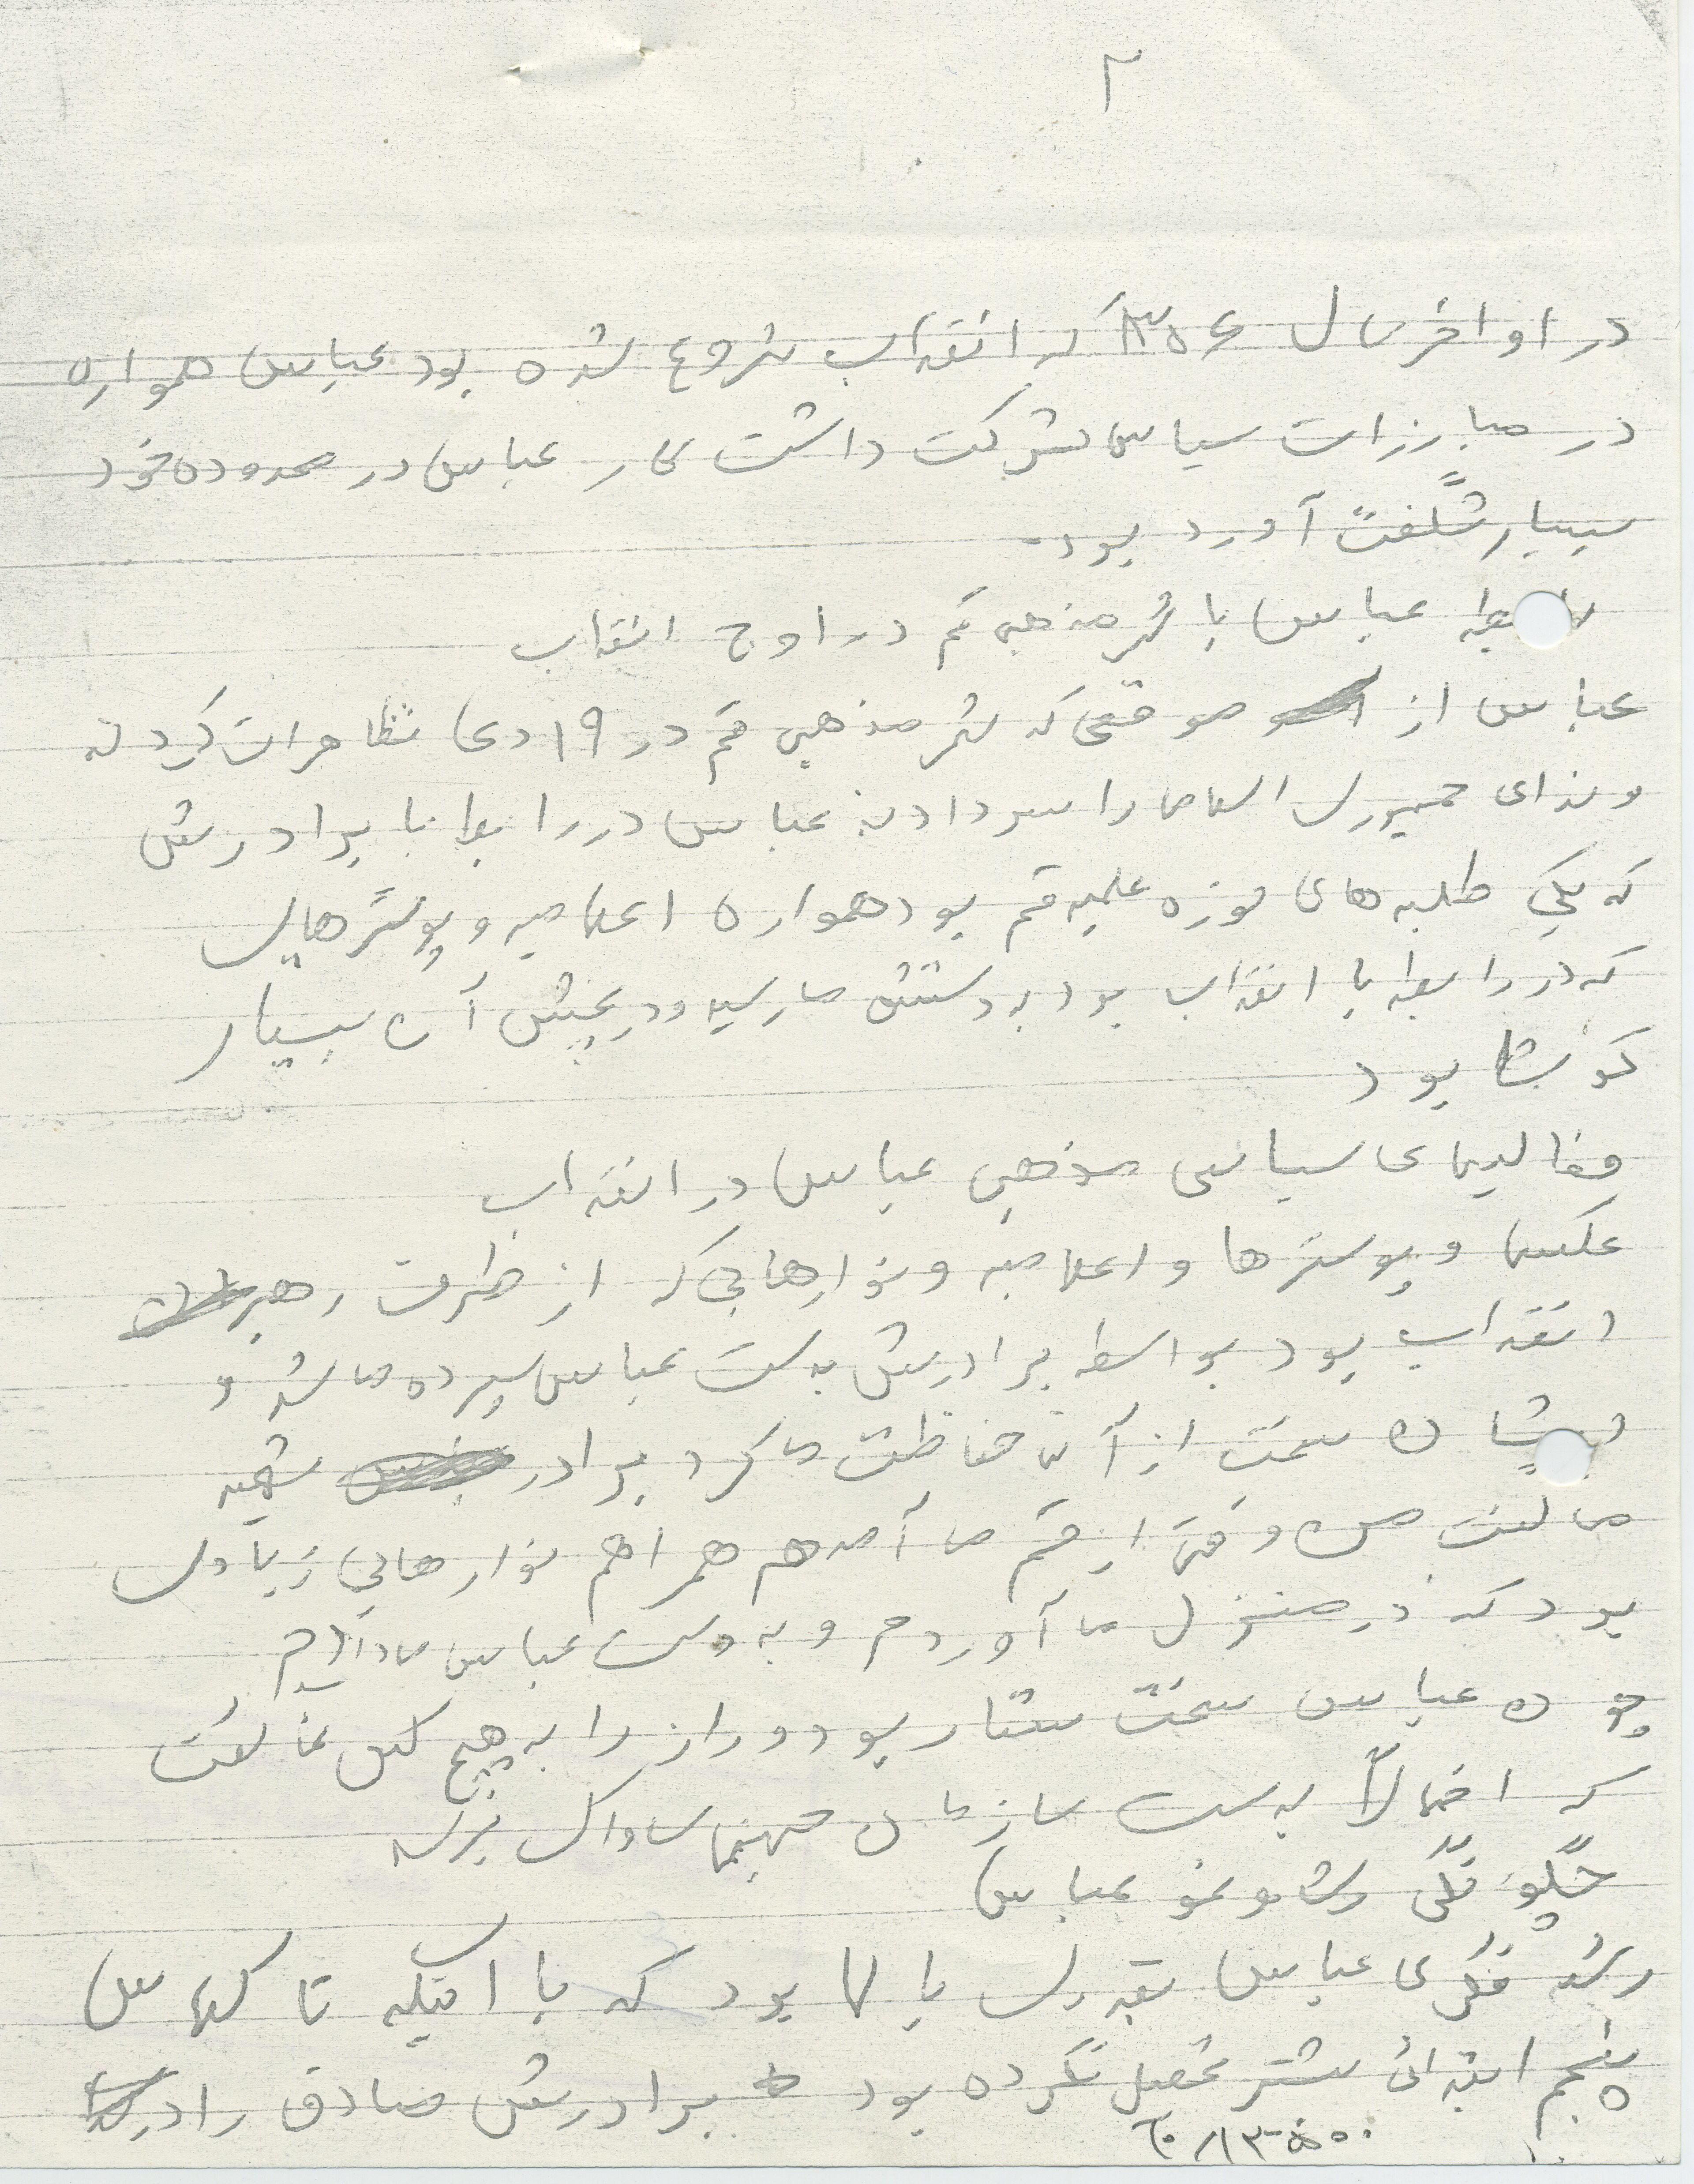 ۲
در اواخر سال ۱۳۵۶ که انقلاب شروع شده بود عباس همواره
در مبارزات سیاسی شرکت داشت کار عباس در محدوده خود
بسیار شگفت آورد بود.
رابطه عباس با شهر مذهبی قم در اوج انقلاب
عباس از موقعی که شهر مذهبی قم در ۱۹ دی تظاهرات کردند
و ندای جمهوری اسلامی را سر دادند عباس در رابطه با برادرش
که یکی طلبه های حوزه علمیه قم بود همواره اعلامیه و پوسترهایی
که در رابطه با انقلاب بود به دستش می رسید و در پخش آن بسیار
کوشا بود
فعالیتهای سیاسی مذهبی عباس در انقلاب
عکسها و پوسترها و اعلامیه و نوارهایی که از طرف رهبر
انقلاب بود بواسطه برادرش بدست عباس سپرده می شد و
ایشان سخت از آن حفاظت می کرد برادر شهید
می گفت من وقتی از قم می آمدم همراهم نوارهایی زیادی
بود که در منزل می آوردم و به دست عباس می دادم
چون عباس سخت ستار بود و راز را به هیچ کس نمی گفت
که احتمالاً بدست سازمان جهنمی ساواک نرسد
چگونگی رشد و نمو عباس
رشد فکری عباس بقدری بالا بود که با اینکه تا کلاس
پنجم ابتدائی بیشتر تحصیل نکرده بود برادرش صادق را در